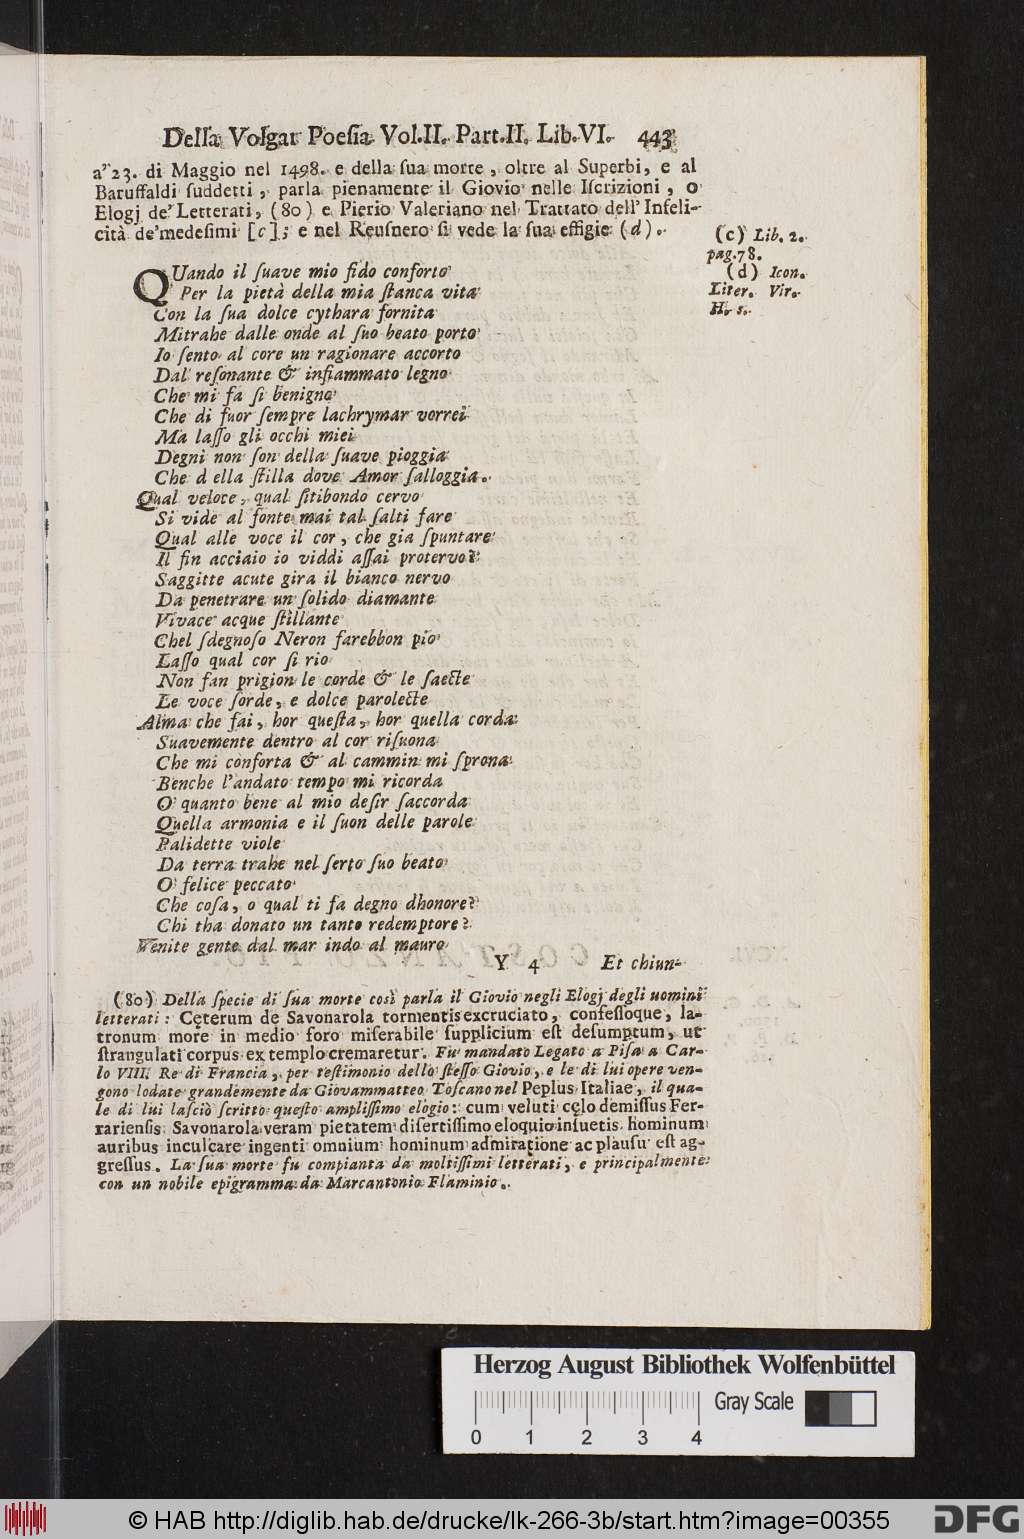 Della Volgar Poesia Vol.II. Part.II. Lib.VI. 443
a' 23. di Maggio nel 1498. e della sua morte, oltre al Superbi, e al
Baruffaldi suddetti, parla pienamente il Giovio nelle Iscrizioni, o
Elogj de' Letterati, (80) e Pierio Valeriano nel Trattato dell' Infeli-
cità de' medesimi [c]; e nel Reusnero si vede la sua effigie (d).
(c) Lib. 2.
pag. 78.
(d) Icon.
Liter. Vir.
H. 5.
QUando il suave mio fido conforto
Per la pietà della mia stanca vita
Con la sua dolce cythara fornita
Mitrahe dalle onde al suo beato porto
Io sento al core un ragionare accorto
Dal resonante & infiammato legno
Che mi fa si benigno
Che di fuor sempre lachrymar vorrei
Ma lasso gli occhi miei
Degni non son della suave pioggia
Che d ella stilla dove Amor salloggia.
Qual veloce, qual sitibondo cervo
Si vide al fonte mai tal salti fare
Qual alle voce il cor, che gia spuntare
Il fin acciaio io viddi assai protervo?
Saggitte acute gira il bianco nervo
Da penetrare un solido diamante
Vivace acque stillante
Chel sdegnoso Neron farebbon pio
Lasso qual cor si rio
Non fan prigion le corde & le saette
Le voce sorde, e dolce parolette
Alma che fai, hor questa, hor quella corda
Suavemente dentro al cor risuona
Che mi conforta & al cammin mi sprona
Benche l'andato tempo mi ricorda
O quanto bene al mio desir saccorda
Quella armonia e il suon delle parole
Palidette viole
Da terra trahe nel serto suo beato
O felice peccato
Che cosa, o qual ti fa degno dhonore?
Chi tha donato un tanto redemptore?
Venite gente dal mar indo al mauro
Y 4 Et chiun-
(80) Della specie di sua morte così parla il Giovio negli Elogj degli uomini
letterati: Cęterum de Savonarola tormentis excruciato, confessoque, la-
tronum more in medio foro miserabile supplicium est desumptum, ut
strangulati corpus ex templo cremaretur. Fu mandato Legato a Pisa a Car-
lo VIII. Re di Francia, per testimonio dello stesso Giovio, e le di lui opere ven-
gono lodate grandemente da Giovammatteo Toscano nel Peplus Italiae, il qua-
le di lui lasciò scritto questo amplissimo elogio: cum veluti cęlo demissus Fer-
rariensis Savonarola veram pietatem disertissimo eloquio insuetis hominum
auribus inculcare ingenti omnium hominum admiratione ac plausu est ag-
gressus. La sua morte fu compianta da moltissimi letterati, e principalmente
con un nobile epigramma da Marcantonio Flaminio.
Herzog August Bibliothek Wolfenbüttel
Gray Scale
0 1 2 3 4
© HAB http://diglib.hab.de/drucke/lk-266-3b/start.htm?image=00355
DFG